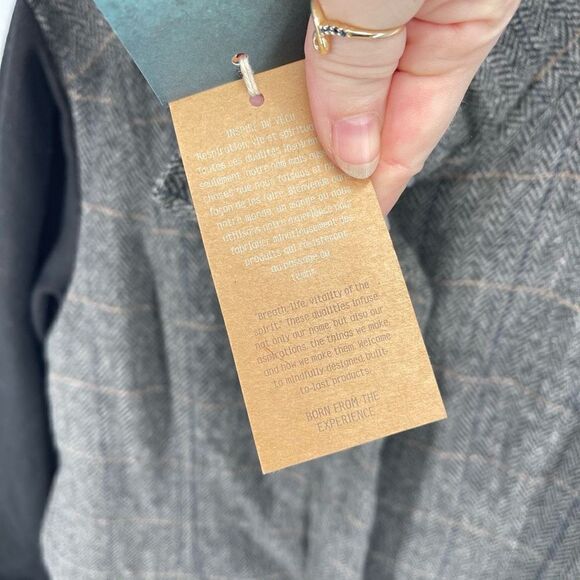 INSPIRÉ DU VÉCU
"Respiration, vie et spiritu
Toutes ces qualités inspirent
seulement notre nom mais
choses que nous faisons et
façon de les faire. Bienvenue
notre monde, un monde où nous
utilisons notre expérience pour
fabriquer minutieusement des
produits qui résisteront
au passage du
temps.
"Breath, life, vitality of the
spirit." These qualities infuse
not only our name, but also our
aspirations, the things we make,
and how we make them. Welcome
to mindfully designed built-
to-last products.
BORN FROM THE
EXPERIENCE